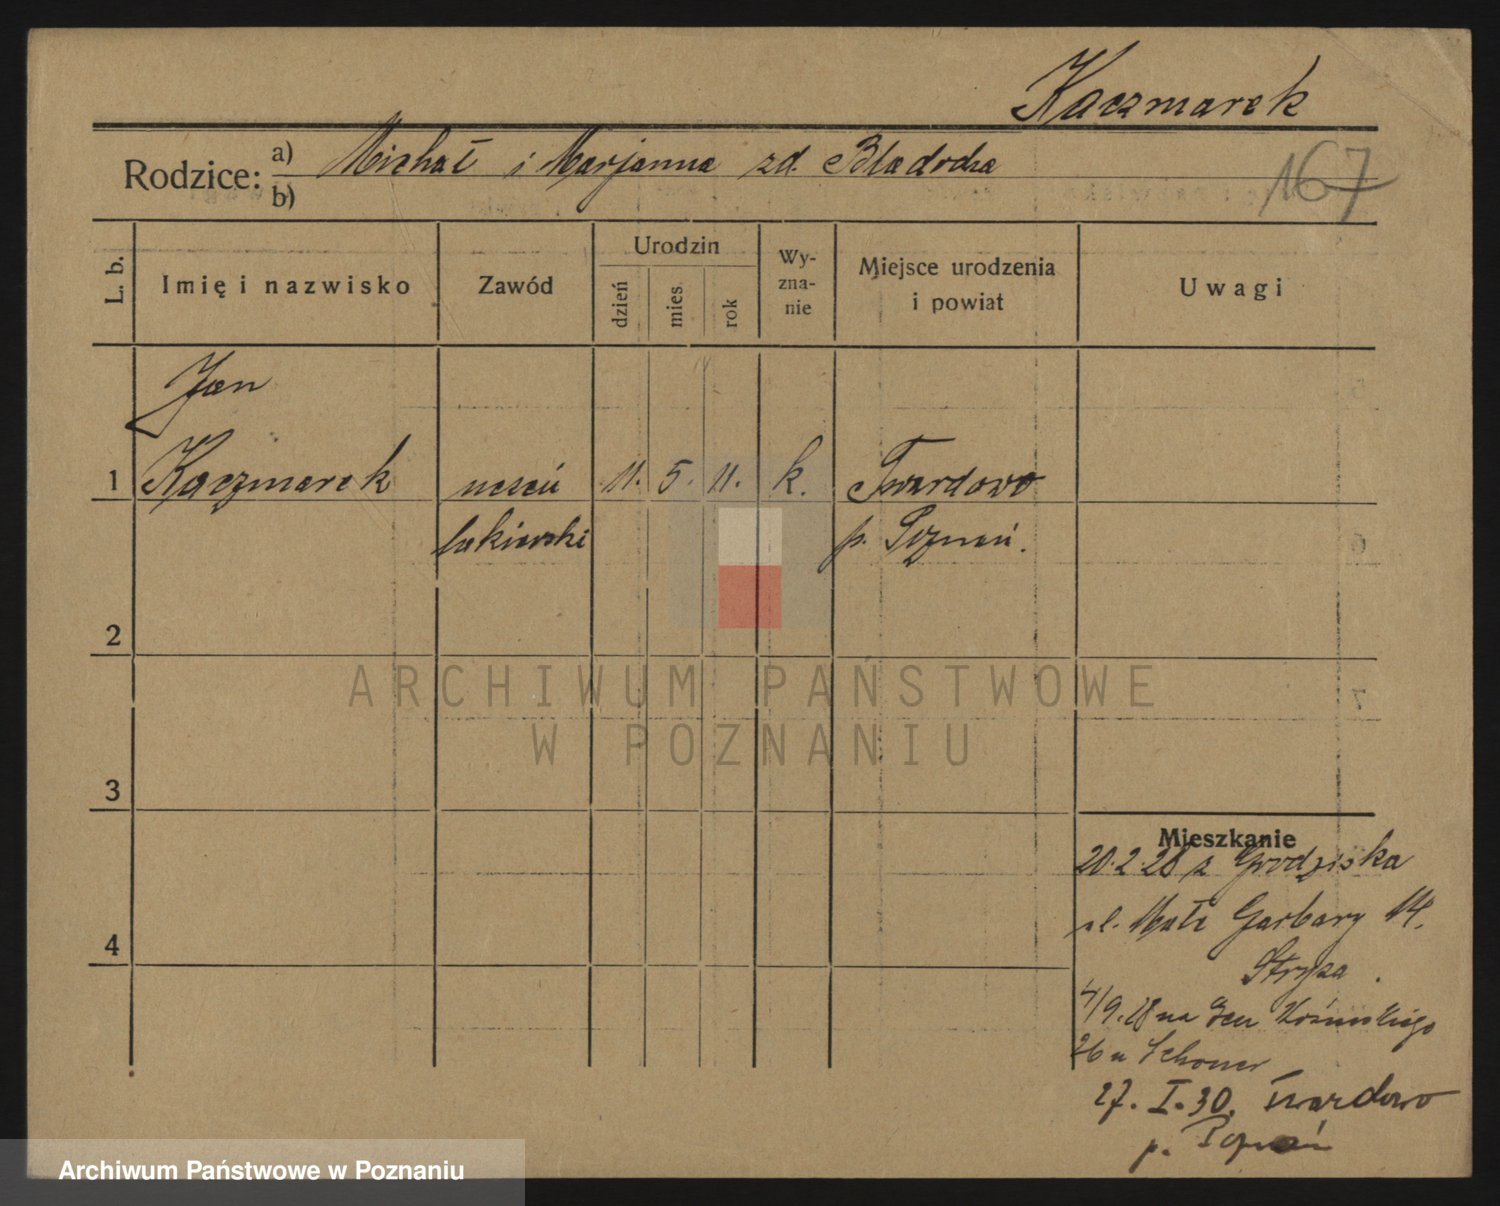 Kaczmarek
Rodzice: a) Michał i Marjanna zd. Bladocha
b)
167
L. b.
Imię i nazwisko
Zawód
Urodzin
dzień
mies.
rok
Wy-
zna-
nie
Miejsce urodzenia
i powiat
Uwagi
Jan
1 Kaczmarek uczeń 11. 5. 11. k. Twardowo
lakierski p. Poznań.
2
ARCHIWUM PAŃSTWOWE
W POZNANIU
3
Mieszkanie
20.2.28 z Grodziska
ul. Małe Garbary 14.
4
4/9.28 na Gen
26 u
27. I. 30. Twardowo
p. Poznań
Archiwum Państwowe w Poznaniu